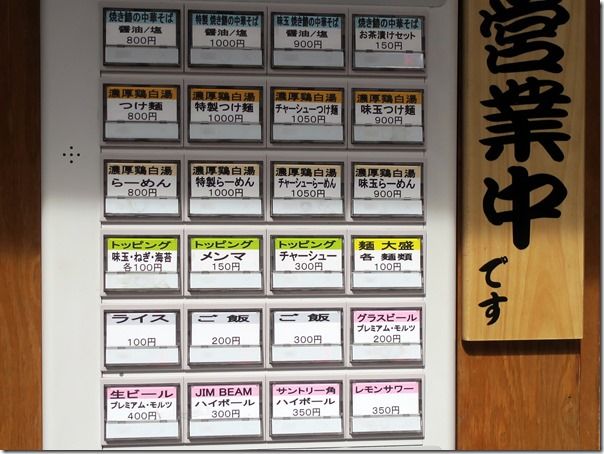 焼き鯵の中華そば
醤油/塩
800円
特製 焼き鯵の中華そば
醤油/塩
1000円
味玉 焼き鯵の中華そば
醤油/塩
900円
焼き鯵の中華そば
お茶漬けセット
150円
濃厚鶏白湯
つけ麺
800円
濃厚鶏白湯
特製つけ麺
1000円
濃厚鶏白湯
チャーシューつけ麺
1050円
濃厚鶏白湯
味玉つけ麺
900円
濃厚鶏白湯
らーめん
800円
濃厚鶏白湯
特製らーめん
1000円
濃厚鶏白湯
チャーシューらーめん
1050円
濃厚鶏白湯
味玉らーめん
900円
トッピング
味玉・ねぎ・海苔
各100円
トッピング
メンマ
150円
トッピング
チャーシュー
300円
麺 大盛
各 麺類
100円
ライス
100円
ご 飯
200円
ご 飯
300円
グラスビール
プレミアム・モルツ
200円
生ビール
プレミアム・モルツ
400円
JIM BEAM
ハイボール
300円
サントリー角
ハイボール
350円
レモンサワー
350円
営業中
です